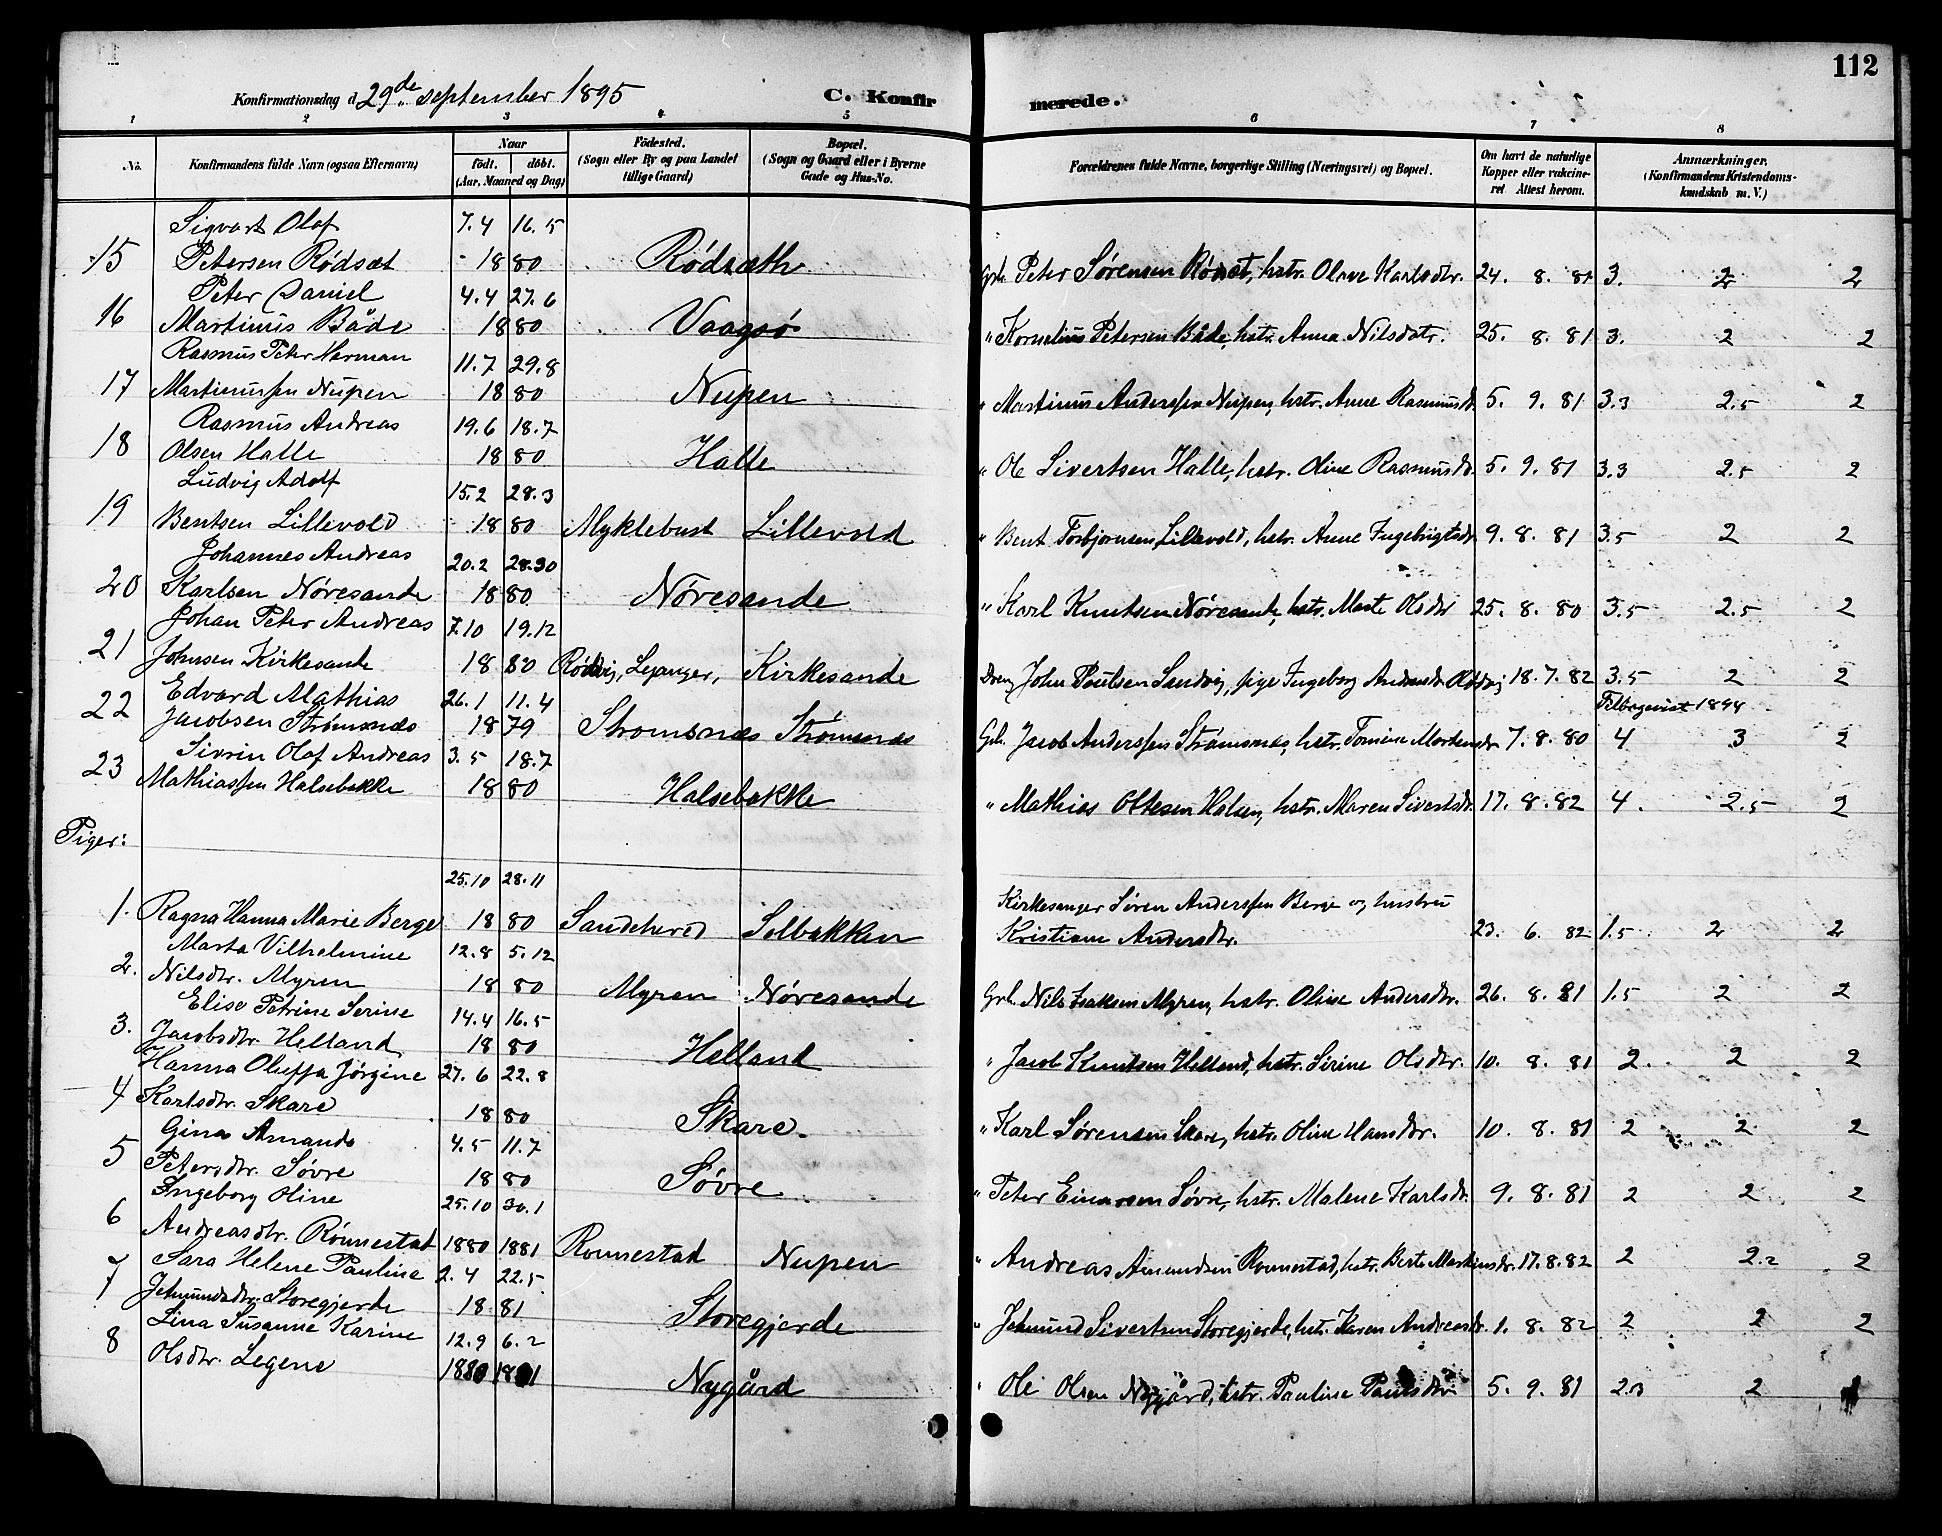 112
Konfirmationsdag d. 29de september 1895 C. Konfirmerede.
1 2 3 4 5 6 7 8
No. Konfirmandens fulde Navn (ogsaa Efternavn) Naar födt. döbt. (Aar, Maaned og Dag) Födested. (Sogn eller By og paa Landet tillige Gaard) Bopæl. (Sogn og Gaard eller i Byerne Gade og Hus-No. Forældrenes fulde Navne, borgerlige Stilling (Næringsvei) og Bopæl. Om havt de naturlige Kopper eller vakcineret Attest herom. Anmærkninger. (Konfirmandens Kristendomskundskab m. V.)
Sigvart Olaf 7.4 16.5
15 Petersen Rødsæt 1880 Rødsæth Grb. Peter Sørensen Rødset, hstr. Olave Karlsdtr. 24. 8. 81 3. 2 2
Peter Daniel 4.4 27.6
16 Martinus Både 1880 Vaagsø " Kornelius Petersen Både, hstr. Anna Nilsdatr. 25. 8. 81 3. 2 2
Rasmus Peter Herman 11.7 29.8
17 Martinussen Nupen 1880 Nupen " Martinus Anderssen Nupen, hstr. Anne Rasmusd. 5. 9. 81 3.3 2.5 2
Rasmus Andreas 19.6 18.7
18 Olsen Halle 1880 Halle " Ole Sivertsen Halle, hstr. Oline Rasmusdr. 5. 9. 81 3.3 2.5 2
Ludvig Adolf 15.2 28.3
19 Bentsen Lillevold 1880 Myklebust Lillevold " Bent Torbjørnsen Lillevold, hstr. Anne Ingebrigtsdr. 9. 8. 81 3.5 2 2
Johannes Andreas 20.2 28.30
20 Karlsen Nøresande 1880 Nøresande " Karl Knutsen Nøresande, hstr. Marte Olsdtr 25. 8. 80 3.5 2.5 2
Johan Peter Andreas 7.10 19.12
21 Johnsen Kirkesande 1880 Rødvig, Lepanger, Kirkesande Dreng John Poulsen Sandvig, pige Ingeborg 18. 7. 82 3.5 2 2
Edvard Mathias 26.1 11.4 Tilbagevist 1894
22 Jacobsen Strømsnæs 1879 Stromsnæs Strømsnæs Grb. Jacob Anderssen Strømsnes, hstr. Tomine Mortensdr 7. 8. 80 4 3 2
Sivrin Olaf Andreas 3.5 18.7
23 Mathiassen Halsebakke 1880 Halsebakke " Mathias Oltesen Halsen, hstr. Maren Sivertsdr. 17. 8. 82 4. 2.5 2
Piger:
25.10 28.11 Kirkesanger Søren Anderssen Berge og hustru
1. Ragna Hanna Marie Berge 1880 Sandehered Solbakken Kristiane Andersdtr. 23. 6. 82 1.5 2 2
Marta Vilhelmine 12.8 5.12
2. Nilsdtr. Myren 1880 Myren Nøresande Grb. Nils Isaksen Myren, hstr. Oline Andersdtr. 26. 8. 81 1.5 2 2
Elise Petrine Serine 14.4 16.5
3. Jacobsdtr. Helland 1880 Helland " Jacob Knutsen Helland, hstr. Sirine Olsdtr. 10. 8. 81 2. 2 2
Hanna Oluffa Jørgine 27.6 22.8
4 Karlsdtr. Skare 1880 Skare. " Karl Sørensen Skare, hstr. Oline Hansdtr. 10. 8. 81 2 2 2
Gina Amanda 4.5 11.7
5 Petersdtr. Søvre 1880 Søvre " Peter Einarsen Søvre, hstr. Malene Karlsdr. 9. 8. 81 2 2 2
Ingeborg Oline 25.10 30.1
6 Andreasdtr. Rønnestad 1880 1881 Ronnestad Nupen " Andreas Amundsen Ronnestad, hstr. Berte Martinsdr. 17. 8. 82 2 2.2 2
Sara Helene Pauline 2.4 22.5
7 Jetmundsdtr. Storegjerde 1881 Storegjerde " Jetmund Sivertsen Storegjerde, hstr. Karen Andreasdr. 1. 8. 82 2 2 2
Lina Susanne Karine 12.9 6.2
8 Olsdtr. Legene 1880 1881 Nygård " Ole Olsen Nygård, hstr. Pauline Paulsdtr. 5. 9. 81 2.3 2